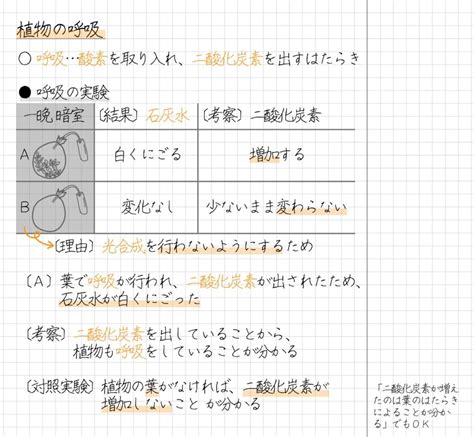 植物の呼吸
○ 呼吸…酸素を取り入れ、二酸化炭素を出すはたらき
● 呼吸の実験
一晩暗室 〔結果〕石灰水 〔考察〕二酸化炭素
A 白くにごる 増加する
B 変化なし 少ないまま変わらない
〔理由〕光合成を行わないようにするため
〔A〕葉で呼吸が行われ、二酸化炭素が出されたため、
石灰水が白くにごった
〔考察〕二酸化炭素を出していることから、
植物も呼吸をしていることが分かる
〔対照実験〕植物の葉がなければ、二酸化炭素が
増加しないこと が分かる
「二酸化炭素が増え
たのは葉のはたらき
によることが分か
る」でもOK